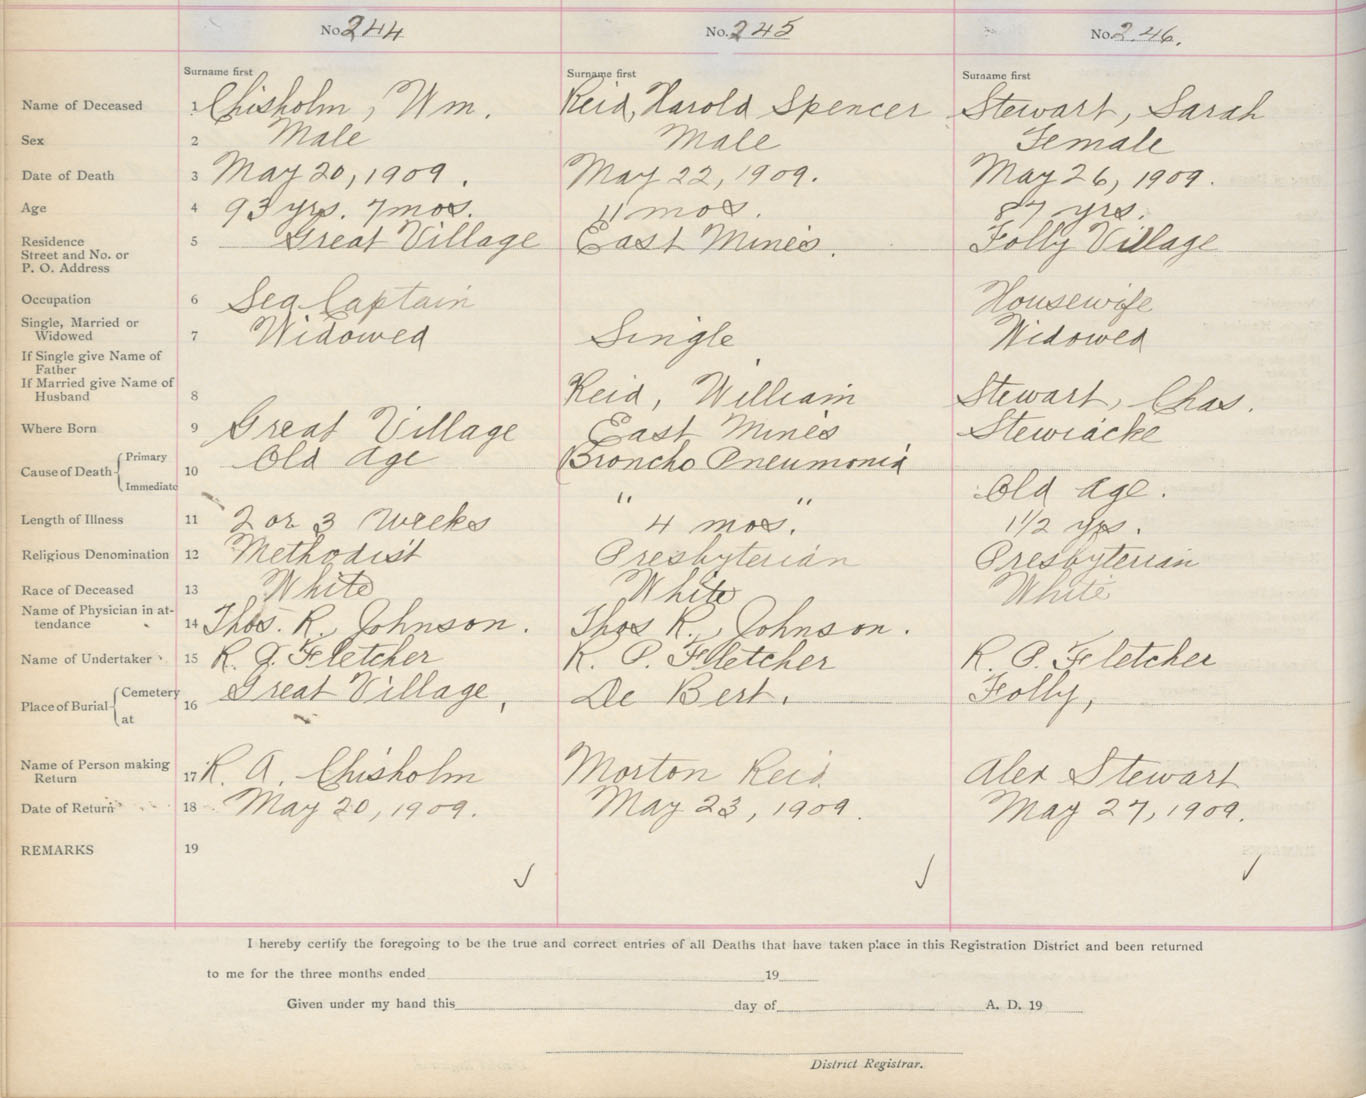 No. 244 No. 245 No. 246.
Surname first Surname first Surname first
Name of Deceased 1 Chisholm, Wm. Reid, Harold Spencer Stewart, Sarah
Sex 2 Male Male Female
Date of Death 3 May 20, 1909. May 22, 1909. May 26, 1909.
Age 4 93 yrs. 7 mos. 11 mos. 87 yrs.
Residence 5 Great Village East Mines. Folly Village
Street and No. or
P. O. Address
Occupation 6 Sea Captain Housewife
Single, Married or
Widowed 7 Widowed Single Widowed
If Single give Name of
Father
If Married give Name of
Husband 8 Reid, William Stewart, Chas.
Where Born 9 Great Village East Mines Stewiacke
Cause of Death { Primary 10 Old age Broncho Pneumonia
Immediate " " Old age.
Length of Illness 11 2 or 3 weeks 4 mos. 1 1/2 yrs.
Religious Denomination 12 Methodist Presbyterian Presbyterian
Race of Deceased 13 White White White
Name of Physician in at-
tendance 14 Thos. R. Johnson. Thos R. Johnson.
Name of Undertaker 15 R. P. Fletcher R. P. Fletcher R. P. Fletcher
Place of Burial { Cemetery 16 Great Village, De Bert. Folly,
at
Name of Person making
Return 17 R. A. Chisholm Morton Reid Alex Stewart
Date of Return 18 May 20, 1909. May 23, 1909. May 27, 1909.
REMARKS 19
I hereby certify the foregoing to be the true and correct entries of all Deaths that have taken place in this Registration District and been returned
to me for the three months ended 19
Given under my hand this day of A. D. 19
District Registrar.